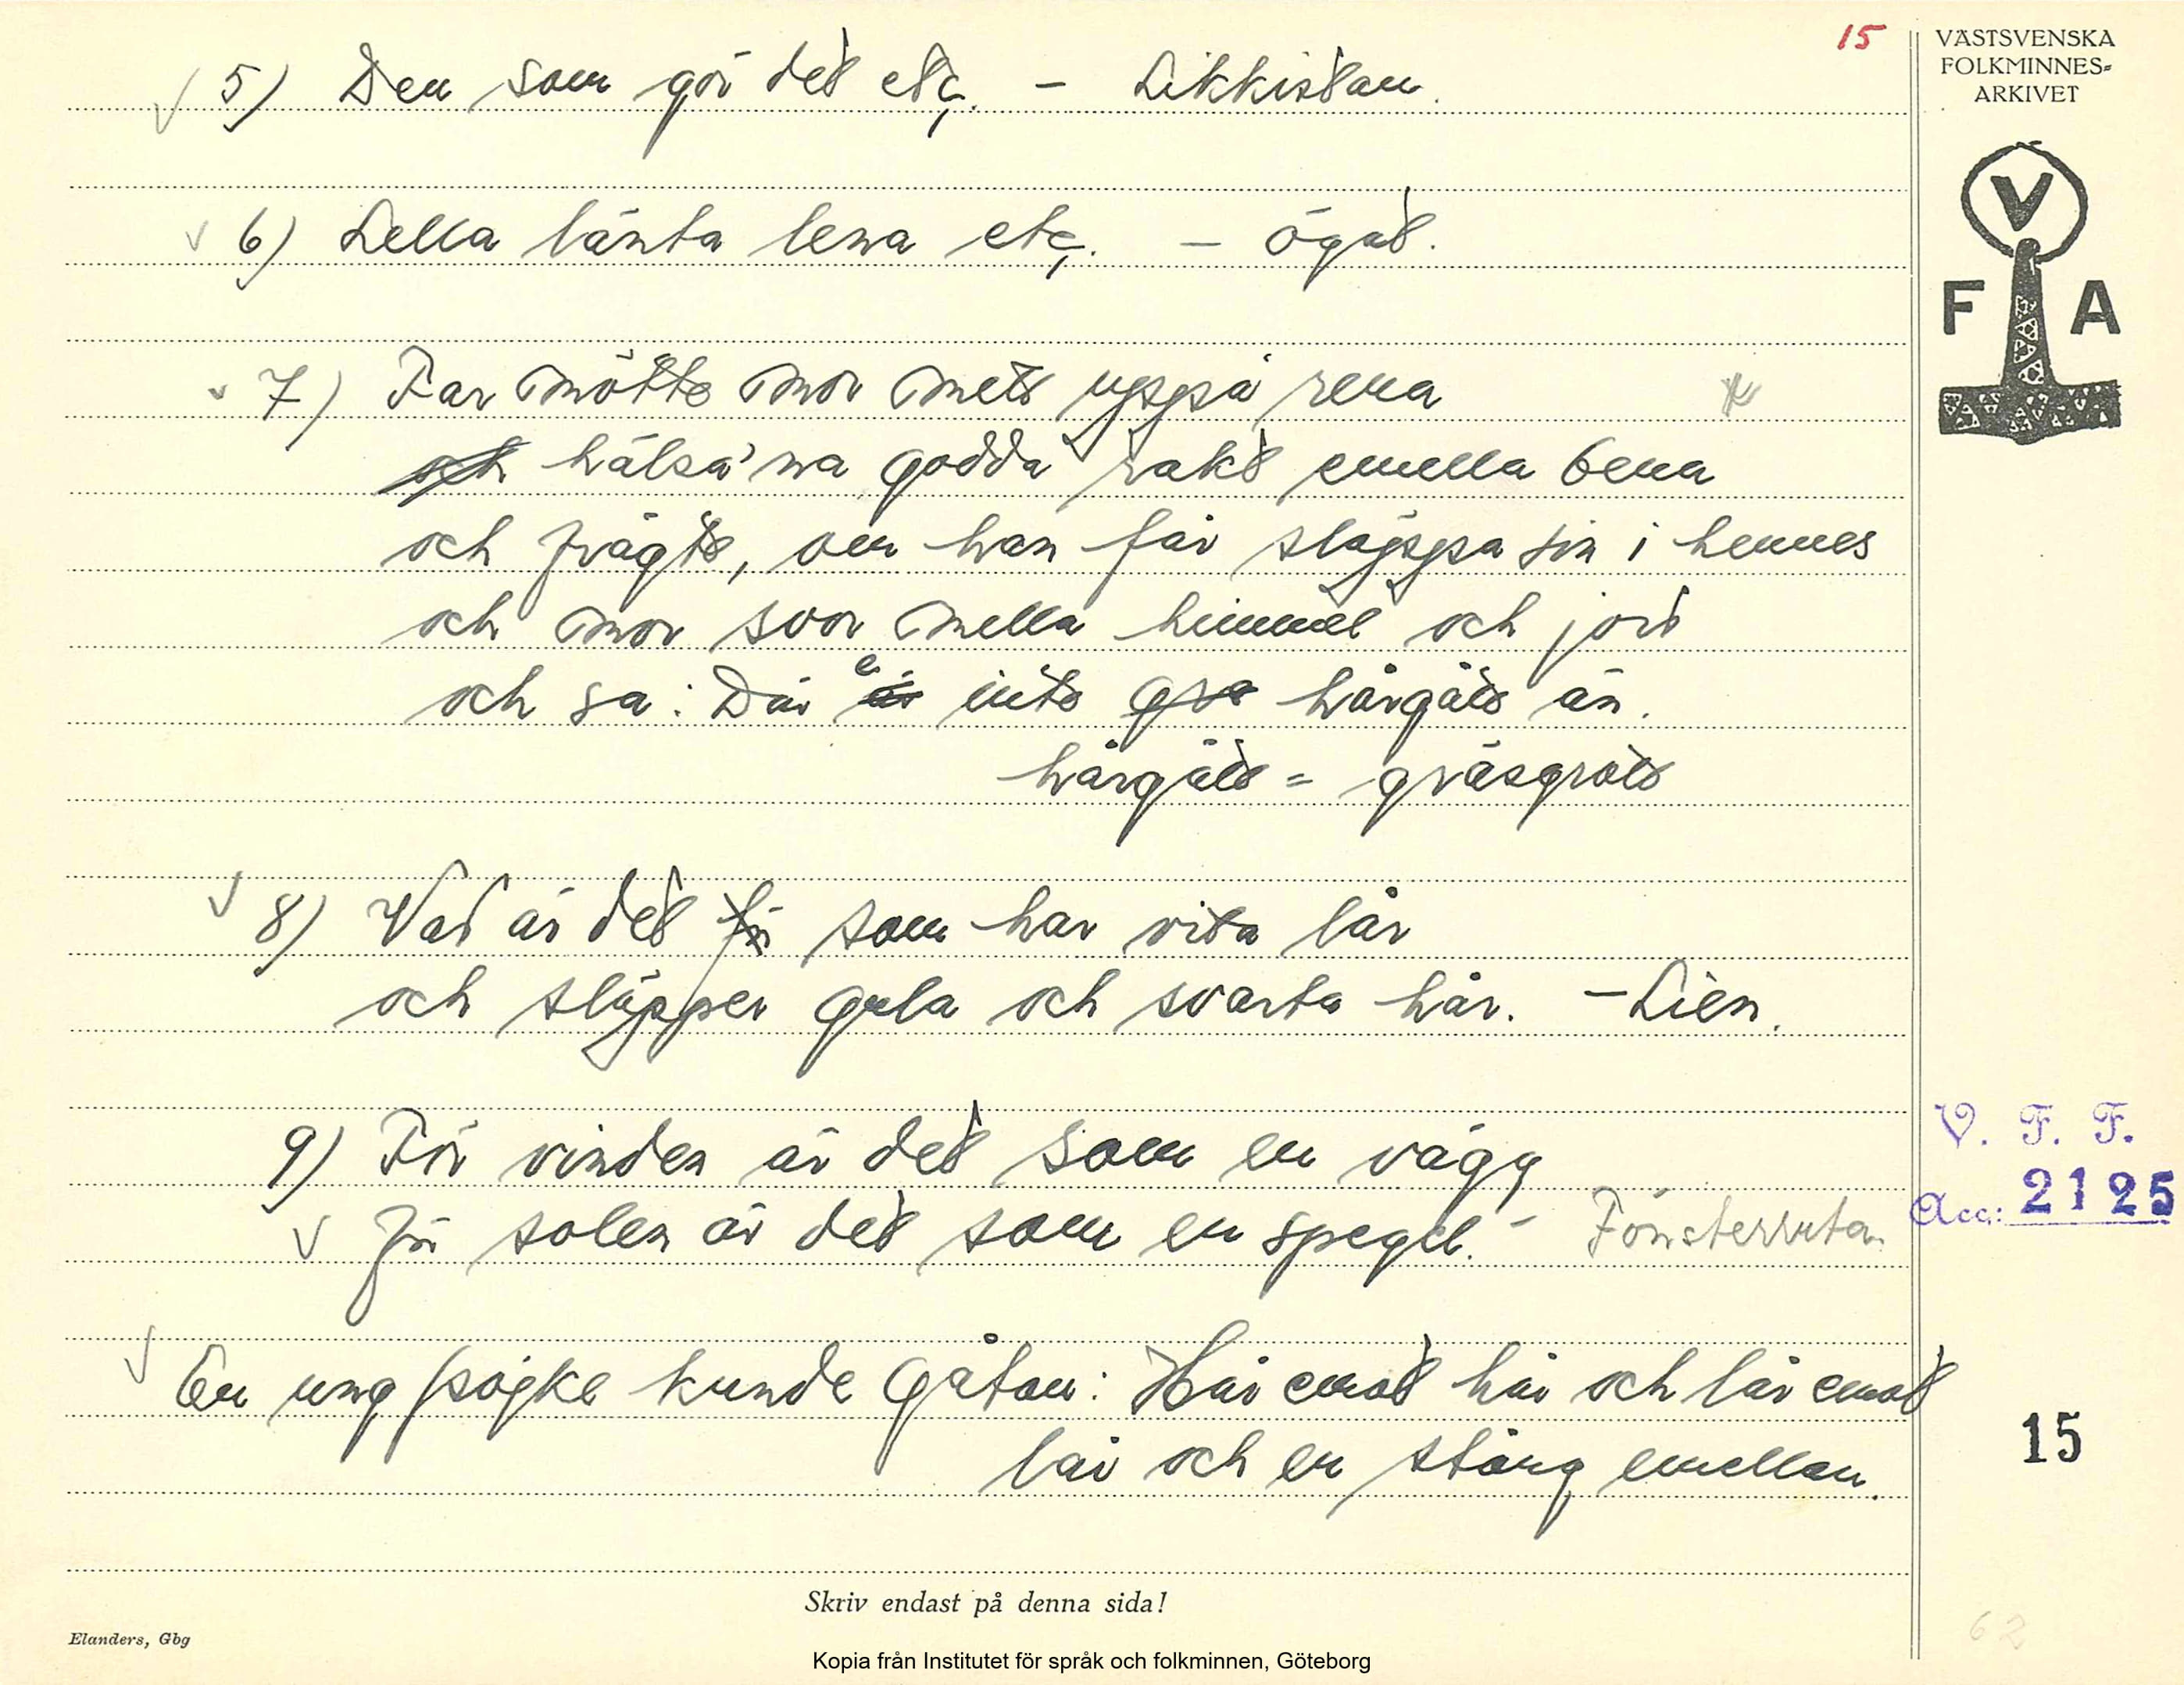 15
VÄSTSVENSKA
FOLKMINNES=
ARKIVET
V
F A
5) Den som gör det etc. - Likkistan.
6) Lella länta lena etc. - ögat.
7) Far mötte mor mett uppå rena
och hälsa' na godda' rakt emella bena
och frågte, om han får släppa sin i hennes
och mor svor mella himmel och jord
och sa: Där är e inte gra hårgått än.
hårgått = gräsgrott
8) Vad är det för som har vita lår
och släpper gula och svarta hår. - Lien.
9) För vinden är det som en vägg
för solen är det som en spegel. - Fönsterruta.
En ung pojke kunde gåtan: Hår emot hår och lår emot
lår och en stång emellan.
V. F. F.
Acc: 2125
15
62
Skriv endast på denna sida!
Elanders, Gbg
Kopia från Institutet för språk och folkminnen, Göteborg